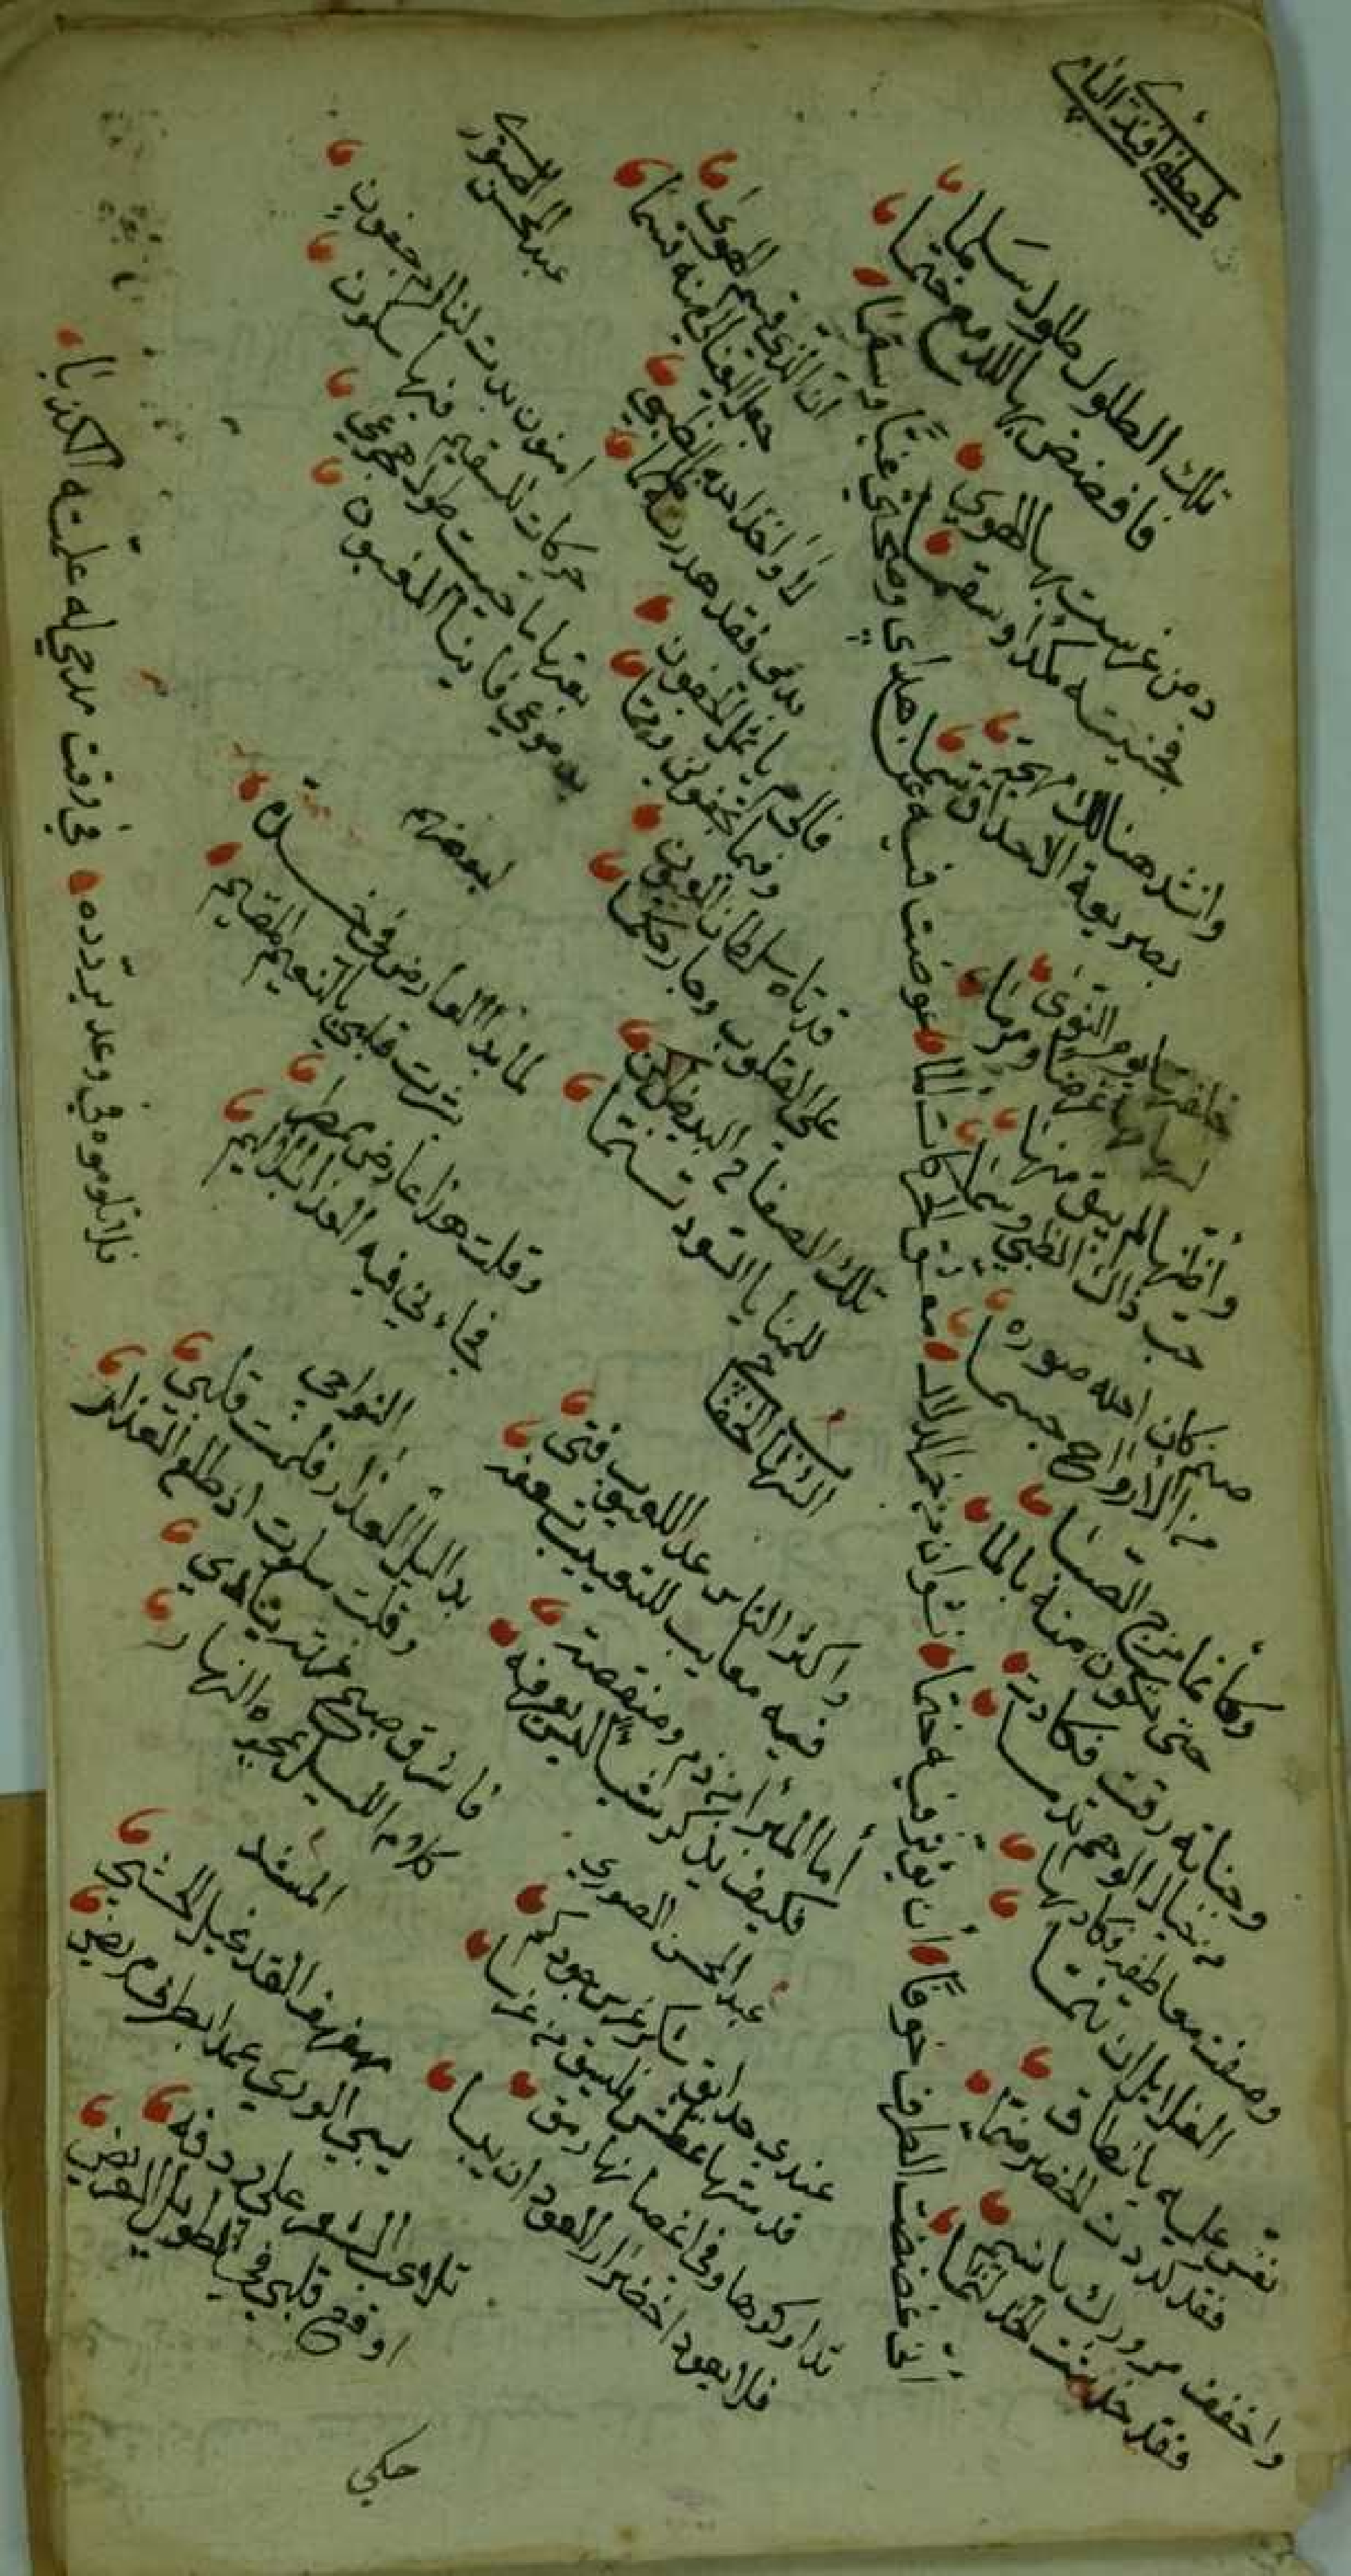 لمصطفى افندي البابي
تلك الطلول طلول سلما
فافضض بها للدمع ختما
دمن غرست بها الهوى
فجنيته كمدا وسقما
وانشد هنالك مهجة
بصريعة الاحداق تسما
خلفتها يوم النوى
غرضا ومرما
وأظنها لم يبق منها
حب ذاك الظبي رسما
صنم كان احله صوره
من الارواح جسما
وكأنما مزج الصبا
حتى تكون منه بالما
وجناته رقت فكادت
من خيال الوهم تدما
وصفت معاطفه فكاد بها
الغلايل ان تنما
نفس عليه يا نطاق
فقد كددت الخصر ضما
واخفف مرورك يا نسيم
فقد خدشت الخد لثما
اني غضضت الطرف خوفا
ان يؤثر فيه ختما
نشوان من خمر الدلال
معربد الحركات الما
عوضت فيه عن هداي
ومحجتي غيا وسقما
ان الذي قسم الهوى
جعل العنا لي منه قسما
لا واخذ الله الظبي
بدمي فقد هدرته ظلما
فالى م يا ثمل الجفون
وفيما تجفوني وفيما
قد تاه سلطان العيون
على القلوب وجار حكما
تلك الصفاح البيض لكن
للمنايا السود تنتما
الشهاب الخفاجي
واكثر الناس عد اللعيوب فتى
فيه معايب للتعييب تبعثه
أما المبرأ من ذم ومنقصة
فكيف يذكر شيأ ليس يعرفه
عبد المحسن الصوري
عندي حدايق شكر غرس جودكم
قد مسها عطش فليسق من غرسا
تداركوها وفي اغصانها رمق
فلا يعود اخضرار العود ان يبسا
عبد المحسن الصوري
امنون بدت لنا ام جفون
حركات للسقيم فيها سكون
بعتها ما حييت طول هجوعي
بدموعي فاينا المغبون
لبعضهم
لما بدا العارض في خده
بشرت قلبي بالنعيم المقيم
وقلت هذا عارض ممطر
فجاءني فيه العذاب الاليم
النواجي
بدا ليل العذار فلمت قلبي
وقلت سلوت اذ طلع العذار
فاشرق صبح غرته ينادي
كلام الليل يمحوه النهار
المسفد
مهفهف القد عبل الحشى
يسبي الورى عمدا بطرف مريض
تلاوى الشعر على ردفه
اوقع قلبي في الطويل العريض
فلا تلوموه في وعد يردده
في وقت مدحي له علمته الكذبا
حكي